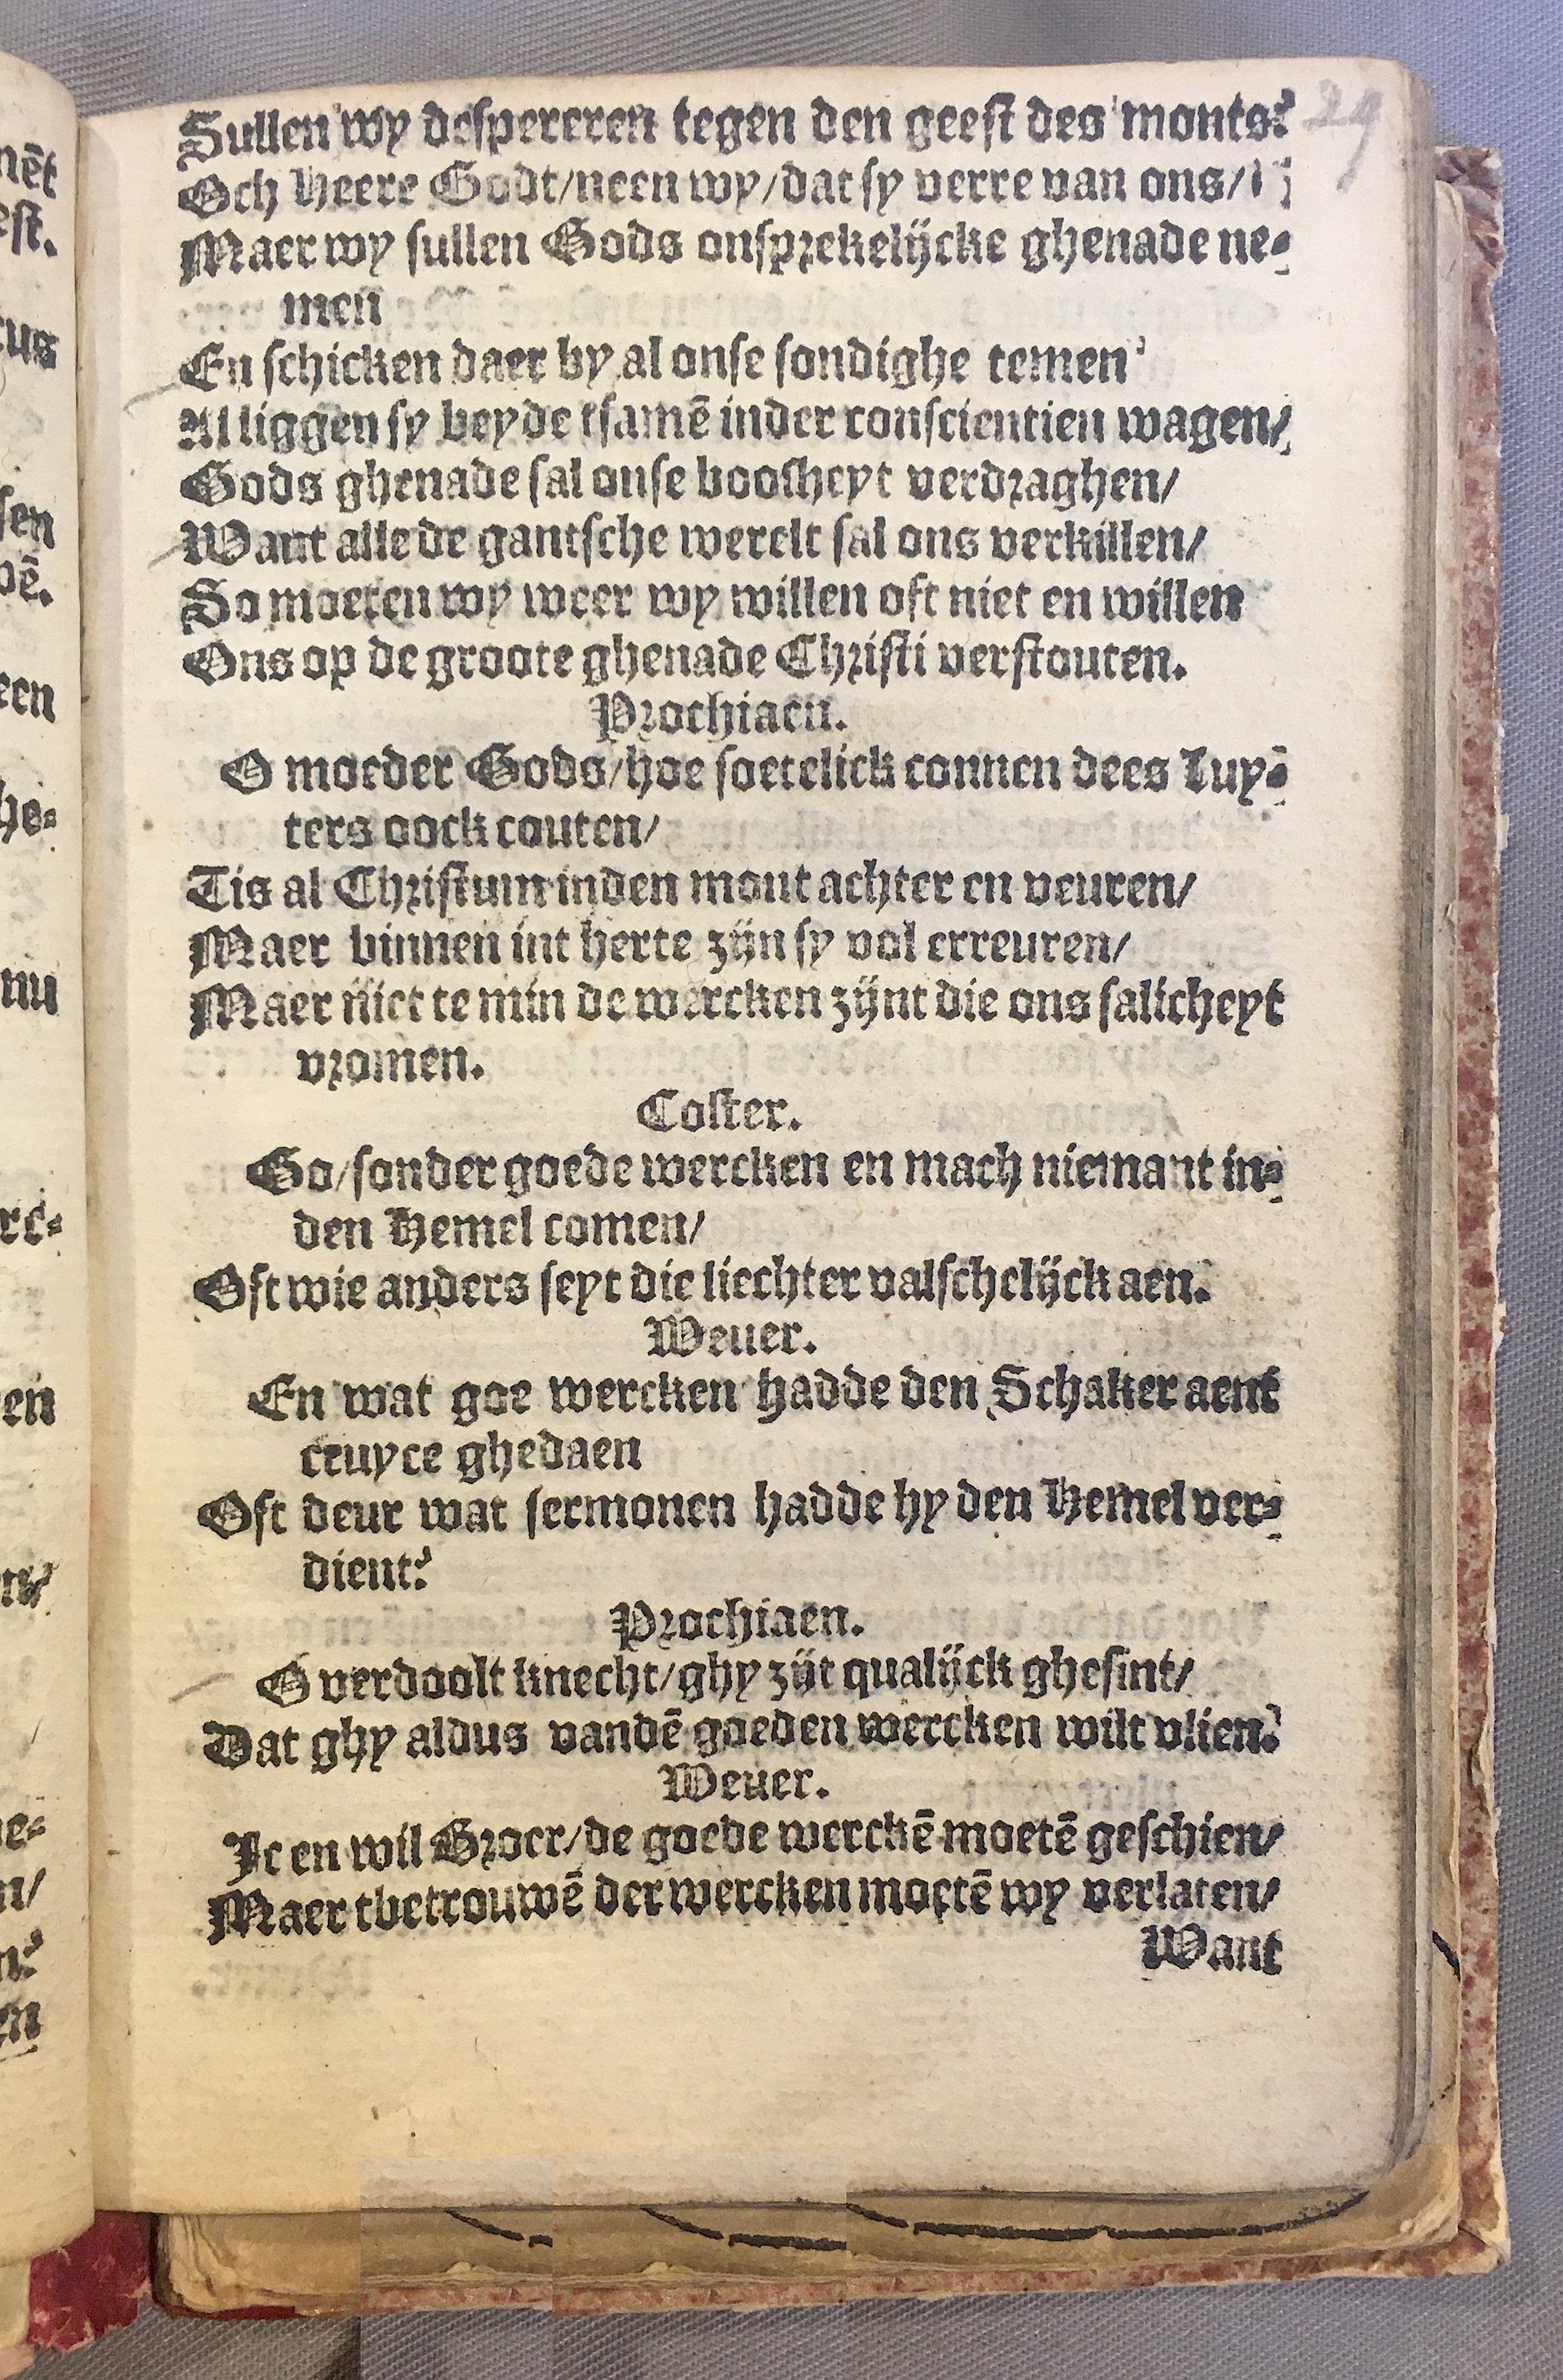 29
Sullen wy despereren tegen den geest des monts?
Och Heere Godt/neen wy/dat sy verre van ons/
Maer wy sullen Gods onsprekelijcke ghenade ne-
men
En schicken daer by al onse sondighe temen
Al liggen sy beyde tsamē inder conscientien wagen/
Gods ghenade sal onse boosheyt verdraghen/
Want alle de gantsche werelt sal ons verkillen/
So moeten wy weer wy willen oft niet en willen
Ons op de groote ghenade Christi verstouten.
Prochiaen.
O moeder Gods/hoe soetelick connen dees Luy-
ters oock couten/
Tis al Christum inden mont achter en veuren/
Maer binnen int herte zijn sy vol erreuren/
Maer niet te min de wercken zijnt die ons salicheyt
vromen.
Coster.
Go/sonder goede wercken en mach niemant in-
den Hemel comen/
Oft wie anders seyt die liechter valschelijck aen.
Weuer.
En wat goe wercken hadde den Schaker aent
cruyce ghedaen
Oft deur wat sermonen hadde hy den Hemel ver-
dient?
Prochiaen.
O verdoolt knecht/ghy zijt qualijck ghesint/
Dat ghy aldus vandē goeden wercken wilt vlien?
Weuer.
Ic en wil Broer/de goede werckē moetē geschien/
Maer tbetrouwē der wercken moetē wy verlaten/
Want